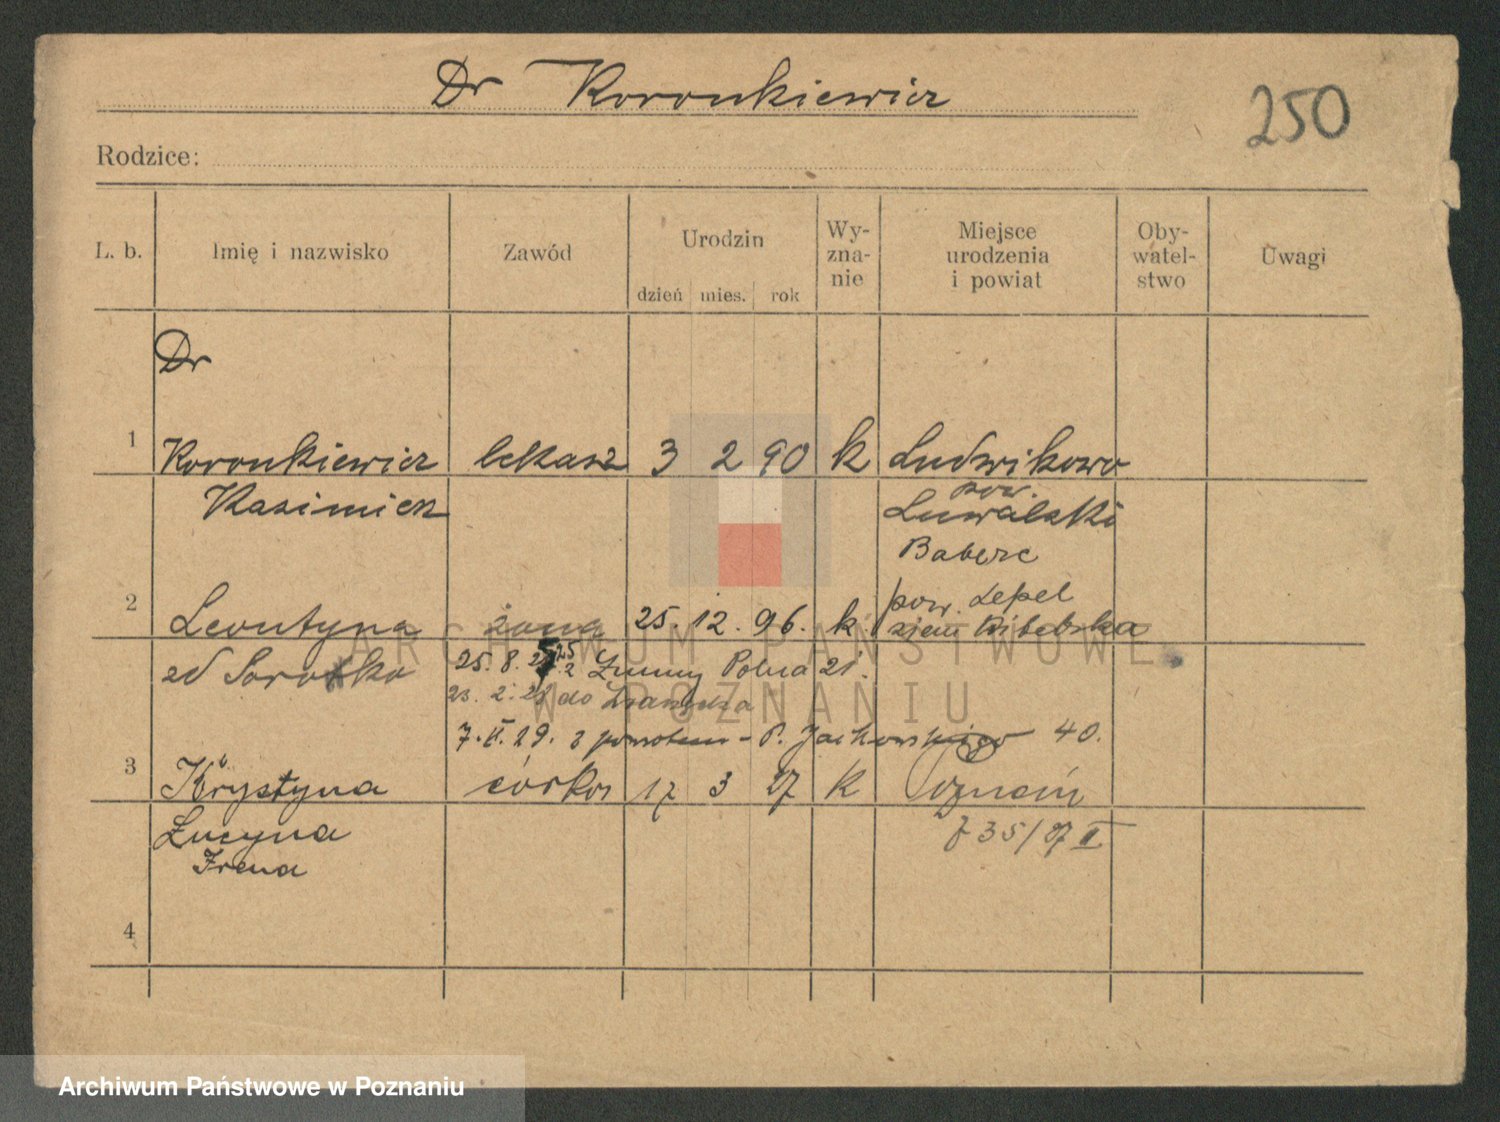 Dr Koronkiewicz
250
Rodzice:
L. b. Imię i nazwisko Zawód Urodzin dzień mies. rok Wy-zna-nie Miejsce urodzenia i powiat Oby-watel-stwo Uwagi
Dr
1 Koronkiewicz lekarz 3 2 90 k Ludwikowo
Kazimierz pow. Suwalski
Baberc
pow. Lepel
2 Leontyna żona 25. 12. 96. k ziem Witebska
zd Sorotko 25. 8. Polna 21.
23. 2. 28 do
7. II. 29. z powrotem - P. Jackowskiego 40.
3 Krystyna córka 17 3 27 k Poznań
Lucyna 35/27 II
Irena
4
ARCHIWUM PAŃSTWOWE
W POZNANIU
Archiwum Państwowe w Poznaniu